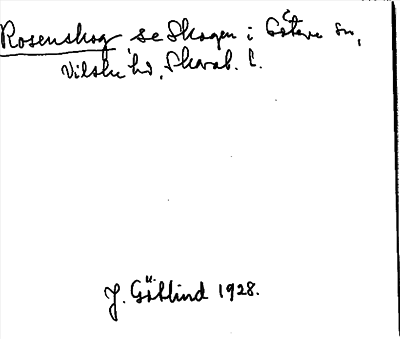 Rosenskog se Skogen i Göteve sn,
Vilske hd, Skarab. l.
J. Götlind 1928.